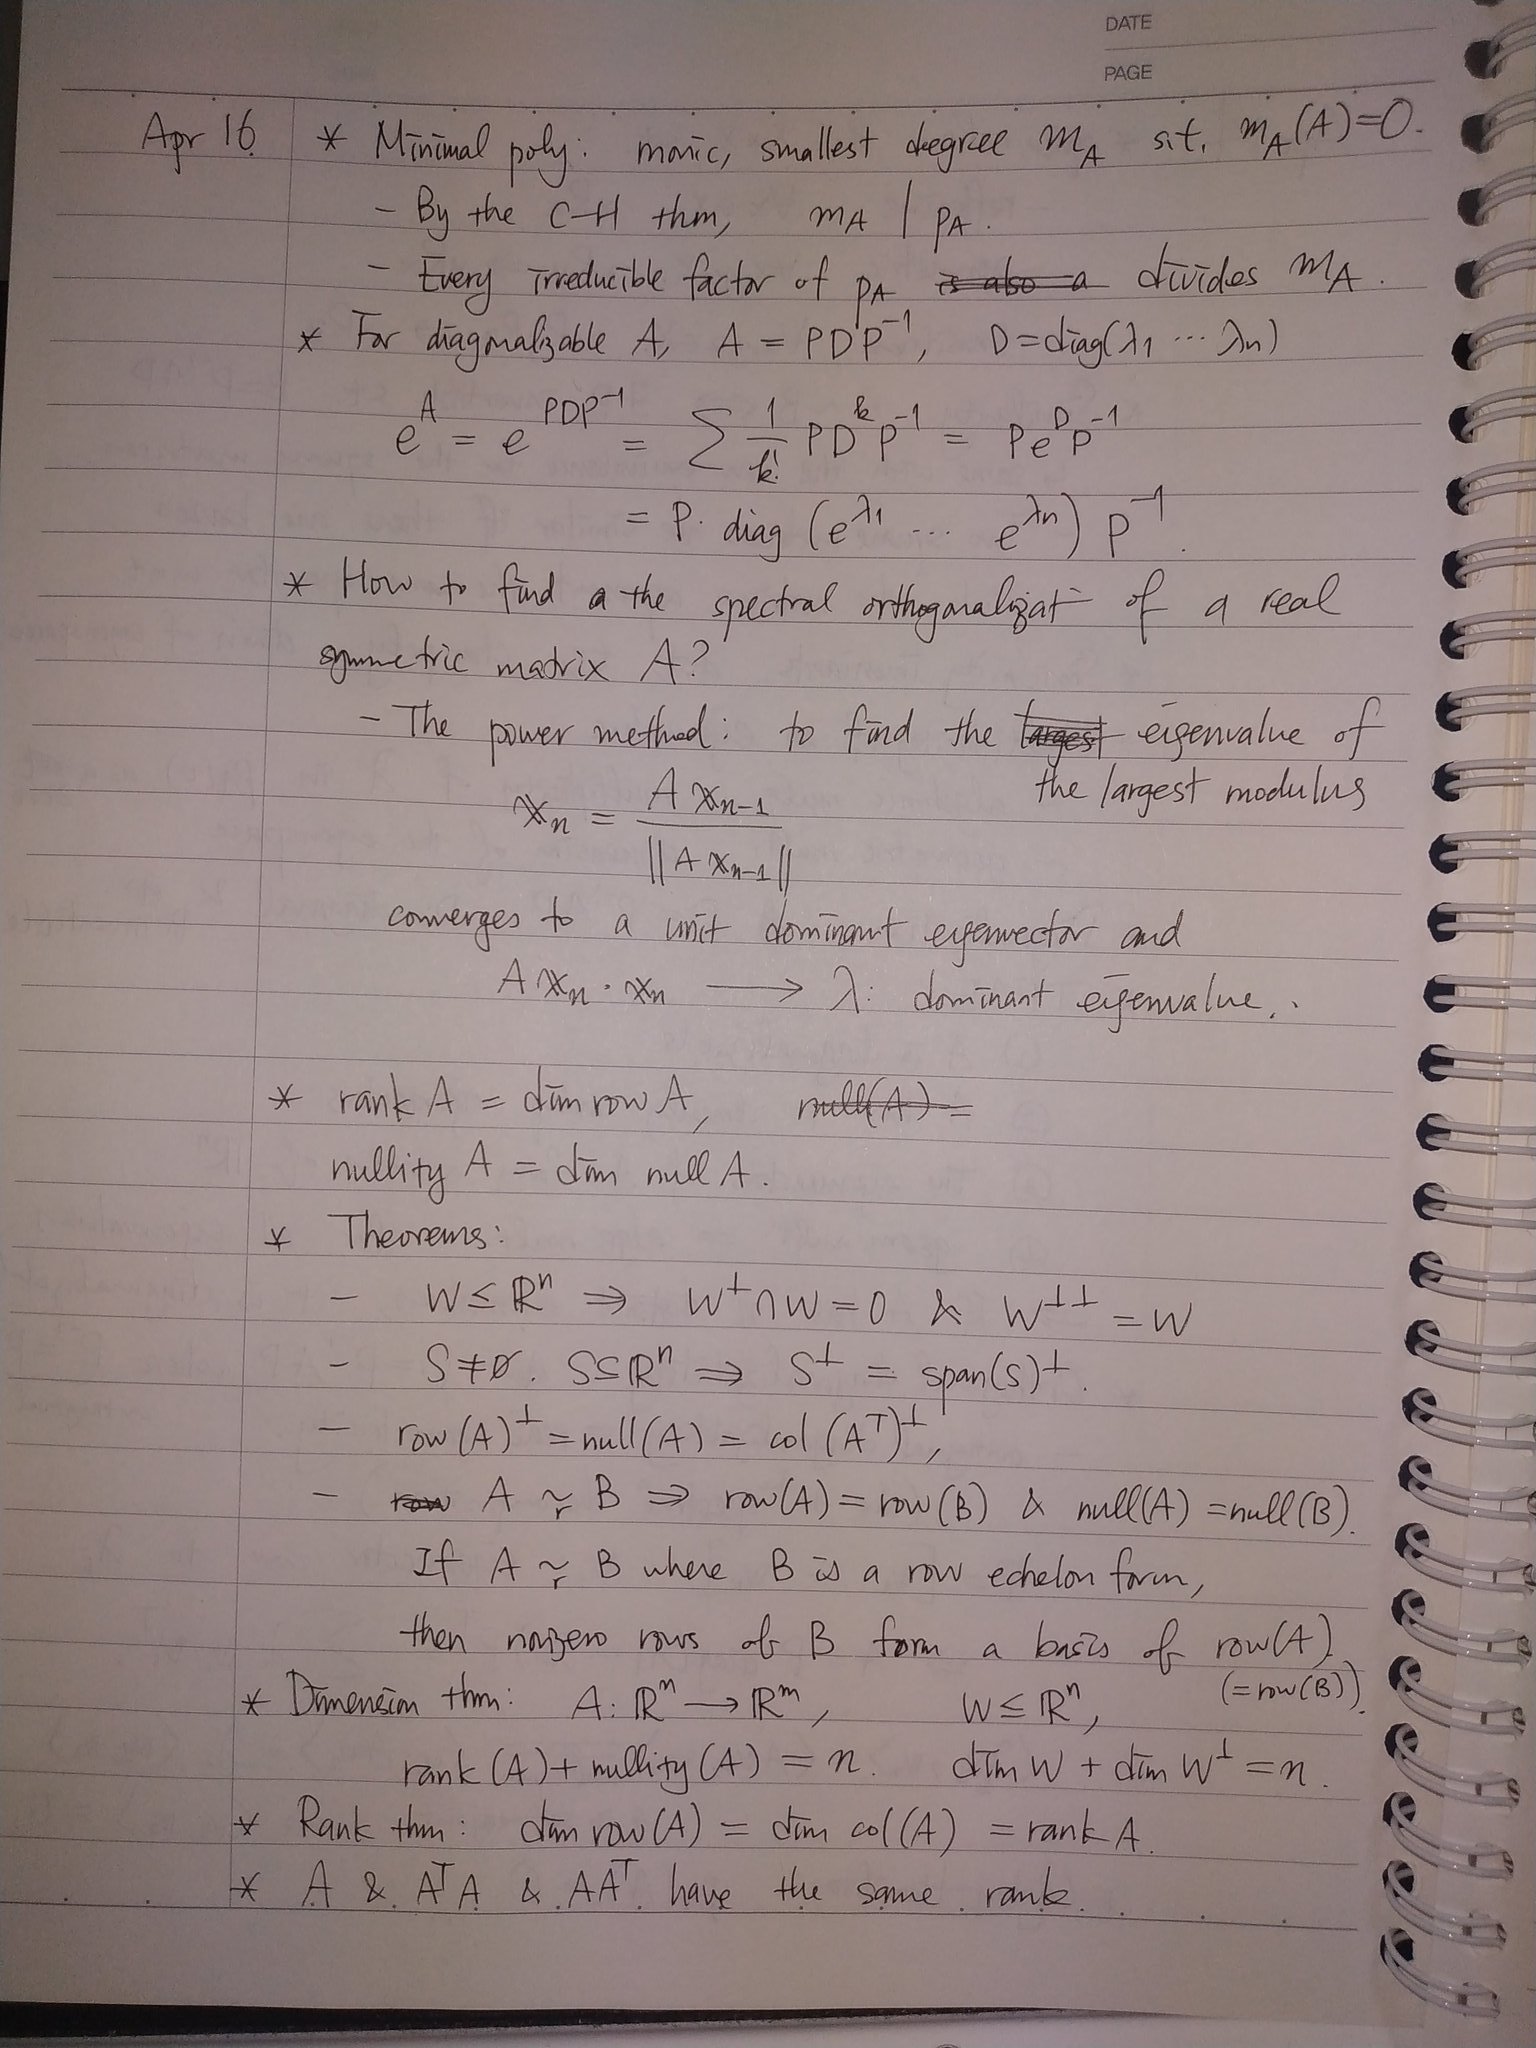 DATE
PAGE
Apr 16 * Minimal poly: monic, smallest degree m_A s.t. m_A(A)=0.
- By the C-H thm, m_A | p_A.
- Every irreducible factor of p_A ~~is also a~~ divides m_A.
* For diagonalizable A, A = PDP^{-1}, D=diag(λ1 ⋯ λn)
e^A = e^{PDP^{-1}} = ∑ 1/k! PD^kP^{-1} = Pe^DP^{-1}
= P· diag (e^{λ1} ⋯ e^{λn}) P^{-1}.
* How to find a the spectral orthogonalizat- of a real
symmetric matrix A?
- The power method: to find the ~~largest~~ eigenvalue of
the largest modulus
x_n = Ax_{n-1} / ||Ax_{n-1}||
converges to a unit dominant eigenvector and
Ax_n · x_n ⟶ λ: dominant eigenvalue..
* rank A = dim row A, ~~null(A) =~~
nullity A = dim null A.
* Theorems:
- W ≤ ℝ^n ⇒ W^⊥ ∩ W = 0 & W^{⊥⊥} = W
- S≠∅. S⊆ℝ^n ⇒ S^⊥ = span(S)^⊥.
- row(A)^⊥ = null(A) = col(A^T)^⊥,
- ~~row~~ A ~_r B ⇒ row(A) = row(B) & null(A) = null(B).
If A ~_r B where B is a row echelon form,
then nonzero rows of B form a basis of row(A)
(=row(B)).
* Dimension thm: A: ℝ^n ⟶ ℝ^m, W ≤ ℝ^n,
rank(A) + nullity(A) = n. dim W + dim W^⊥ = n.
* Rank thm: dim row(A) = dim col(A) = rank A.
* A & A^TA & AA^T have the same rank.